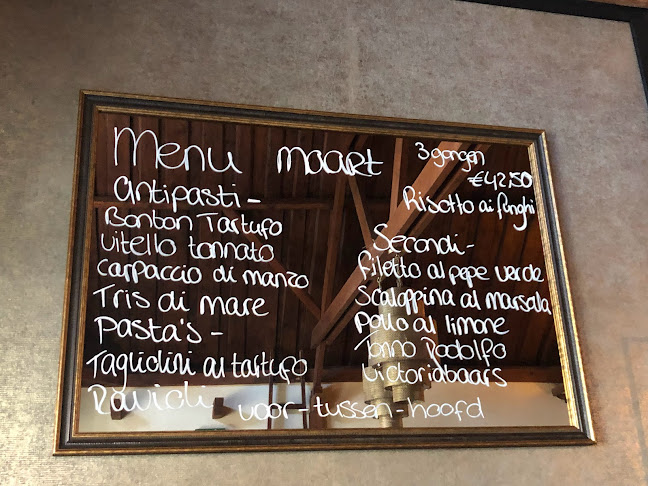 Menu maart 3 gangen
€42,50
Antipasti -
Bonbon Tartufo
Vitello tonnato
Carpaccio di manzo
Tris di mare
Pasta's -
Tagliolini al tartufo
Ravioli
Risotto ai funghi
Secondi -
Filetto al pepe verde
Scaloppina al marsala
Pollo al limone
Tonno Rodolfo
Victoriabaars
voor-tussen-hoofd